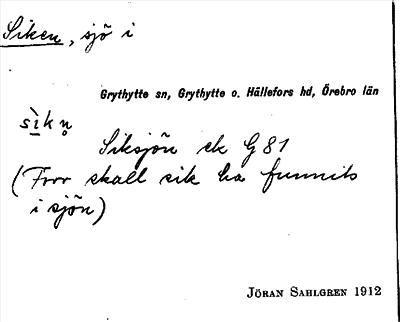 Siken, sjö i
Grythytte sn, Grythytte o. Hällefors hd, Örebro län
sìkn̥
Siksjön ek G 81
(Förr skall sik ha funnits
i sjön)
JÖRAN SAHLGREN 1912